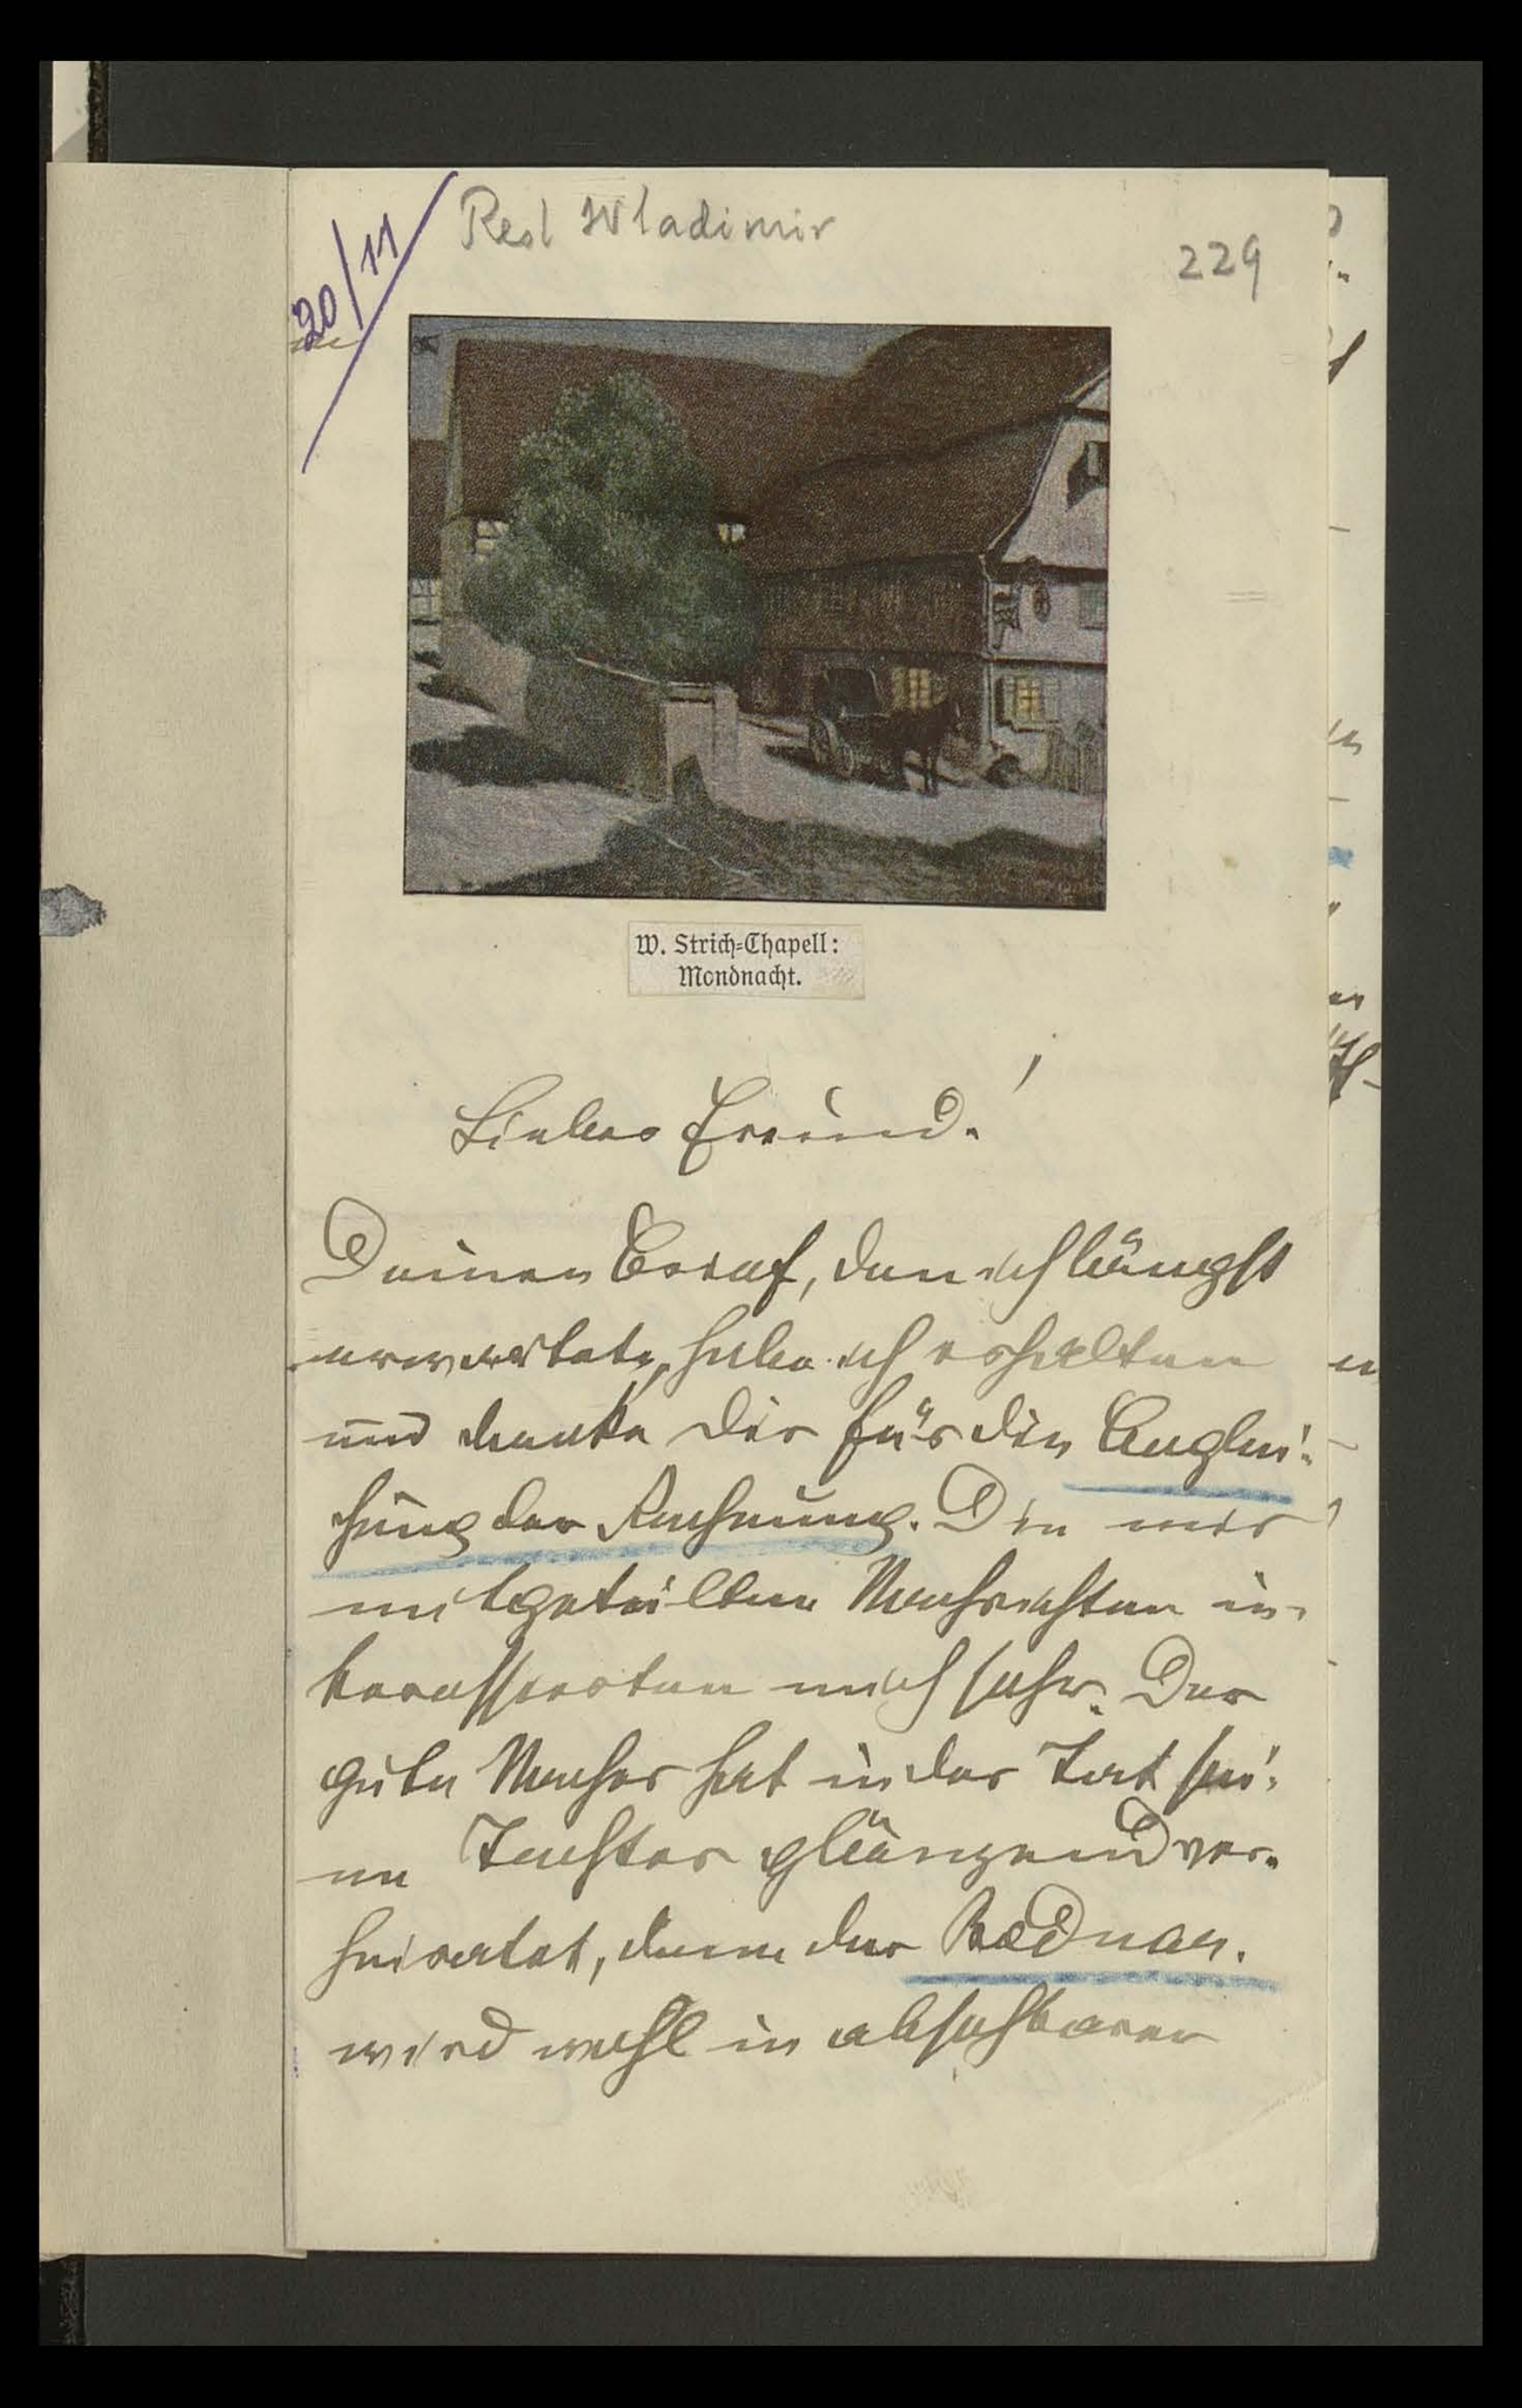 20/11
Resl Wladimir
229
W. Strich-Chapell:
Mondnacht.
Lieber Freund!
Deinen Brief, den ich längst
erwartete, habe ich erhalten
und danke Dir für die Anglei-
chung der Rechnung. Die mir
mitgeteilten Nachrichten in-
teressierten mich sehr. Der
gute Macher hat in der Tat sei-
ne Tochter glänzend ver-
heiratet, denn der Bednar.
wird wohl in absehbarer